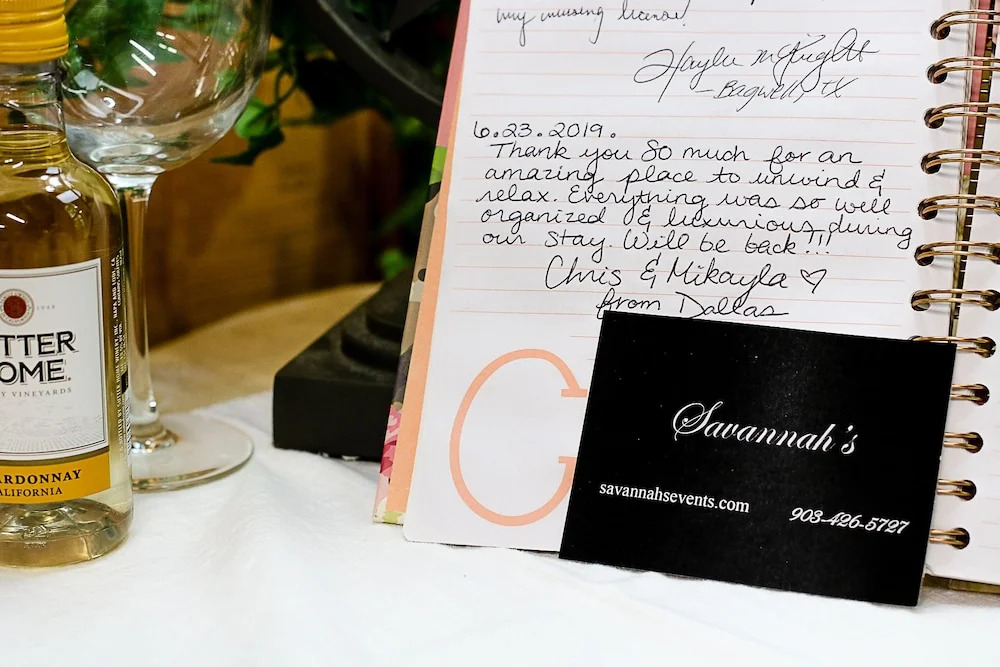 my nursing license!
- Bagwell, TX
6.23.2019.
Thank you SO much for an
amazing place to unwind &
relax. Everything was so well
organized & luxurious during
our stay. Will be back!!!
Chris & Mikayla ♡
from Dallas
C
Savannah's
savannahsevents.com
903-426-5727
TTER
OME.
Y VINEYARDS
RDONNAY
ALIFORNIA